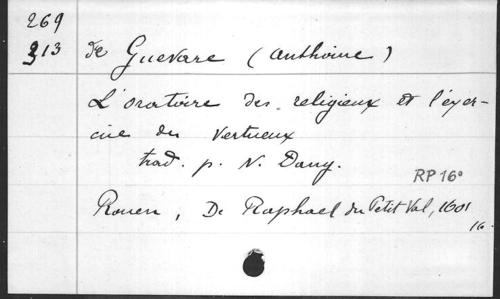 269
213 de Guevare (Anthoine)
L'oratoire des religieux et l'exer-
cice du vertueux
trad. p. N. Dany.
RP 16°
Rouen, De Raphael du Petit Val, 1601
16.